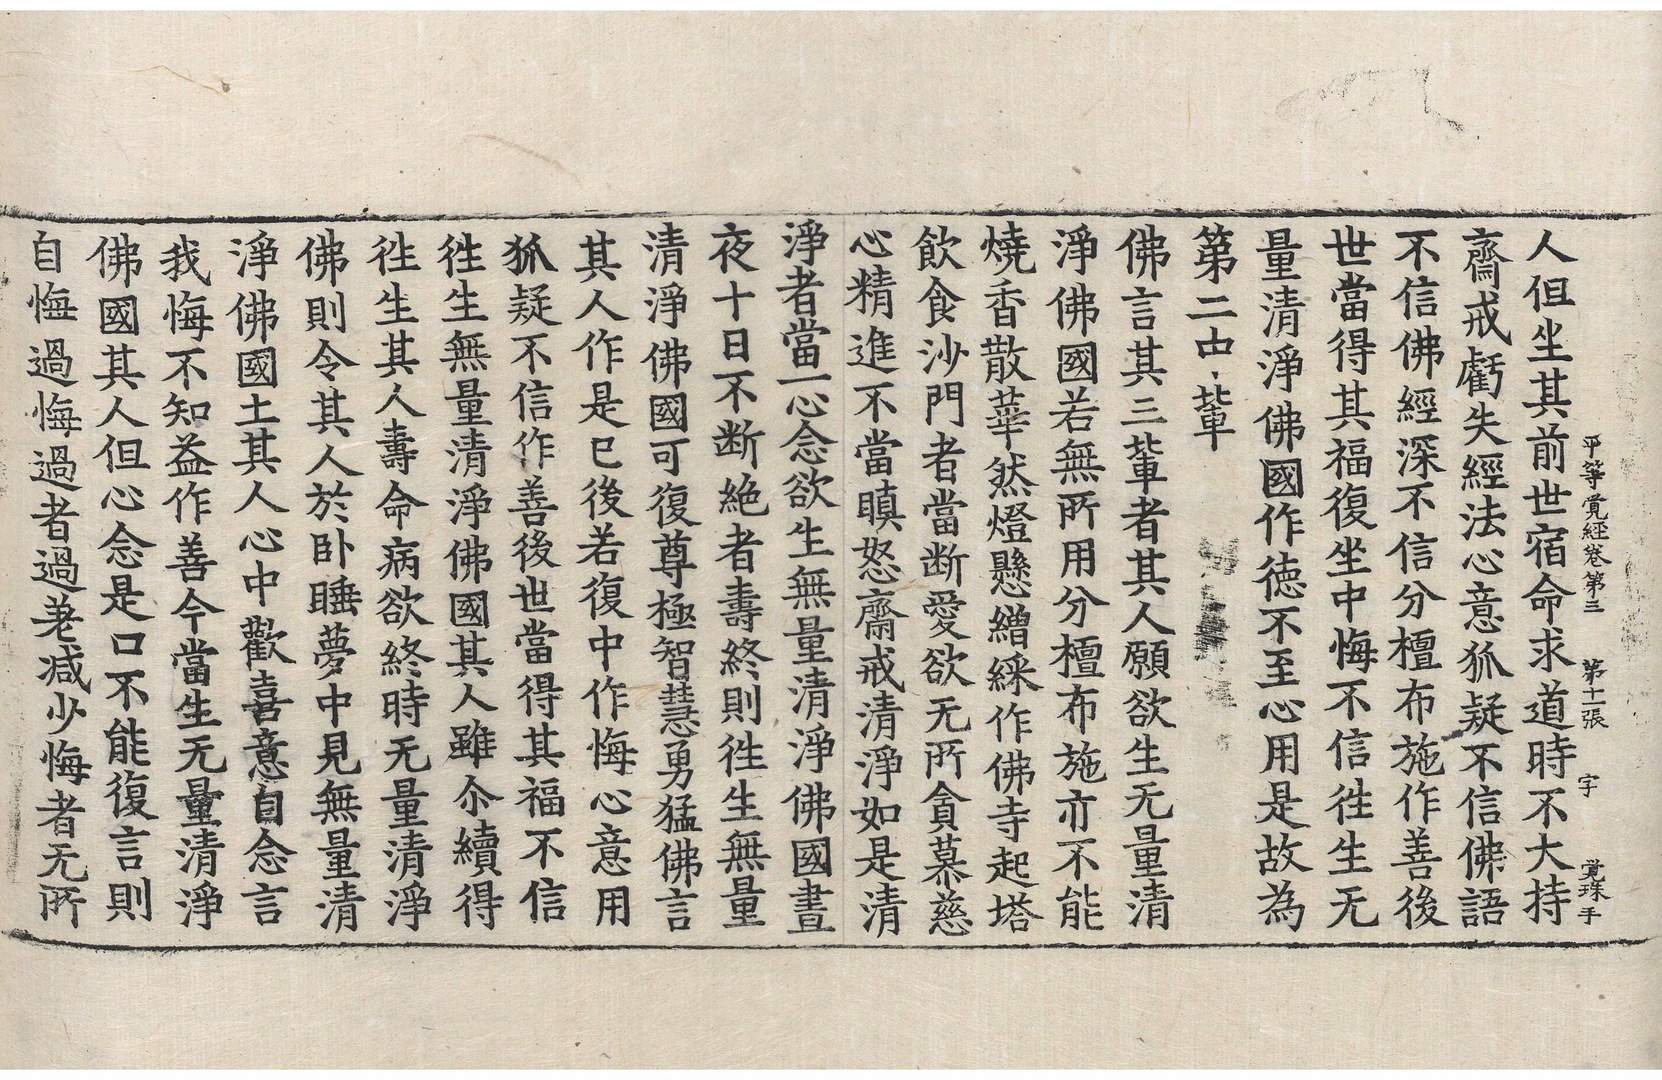 平等覺經卷第三 第十一張 字 覺珠手
人但坐其前世宿命求道時不大持
齋戒虧失經法心意狐疑不信佛語
不信佛經深不信分檀布施作善後
世當得其福復坐中悔不信徃生无
量清淨佛國作徳不至心用是故為
第二中輩
佛言其三輩者其人願欲生无量清
淨佛國若無所用分檀布施亦不能
燒香散華然燈懸繒綵作佛寺起塔
飲食沙門者當断愛欲无所貪慕慈
心精進不當瞋怒齋戒清淨如是清
淨者當一心念欲生無量清淨佛國晝
夜十日不断絶者壽終則徃生無量
清淨佛國可復尊極智慧勇猛佛言
其人作是已後若復中作悔心意用
狐疑不信作善後世當得其福不信
徃生無量清淨佛國其人雖尒續得
徃生其人壽命病欲終時无量清淨
佛則令其人於卧睡夢中見無量清
淨佛國土其人心中歡喜意自念言
我悔不知益作善今當生无量清淨
佛國其人但心念是口不能復言則
自悔過悔過者過差减少悔者无所